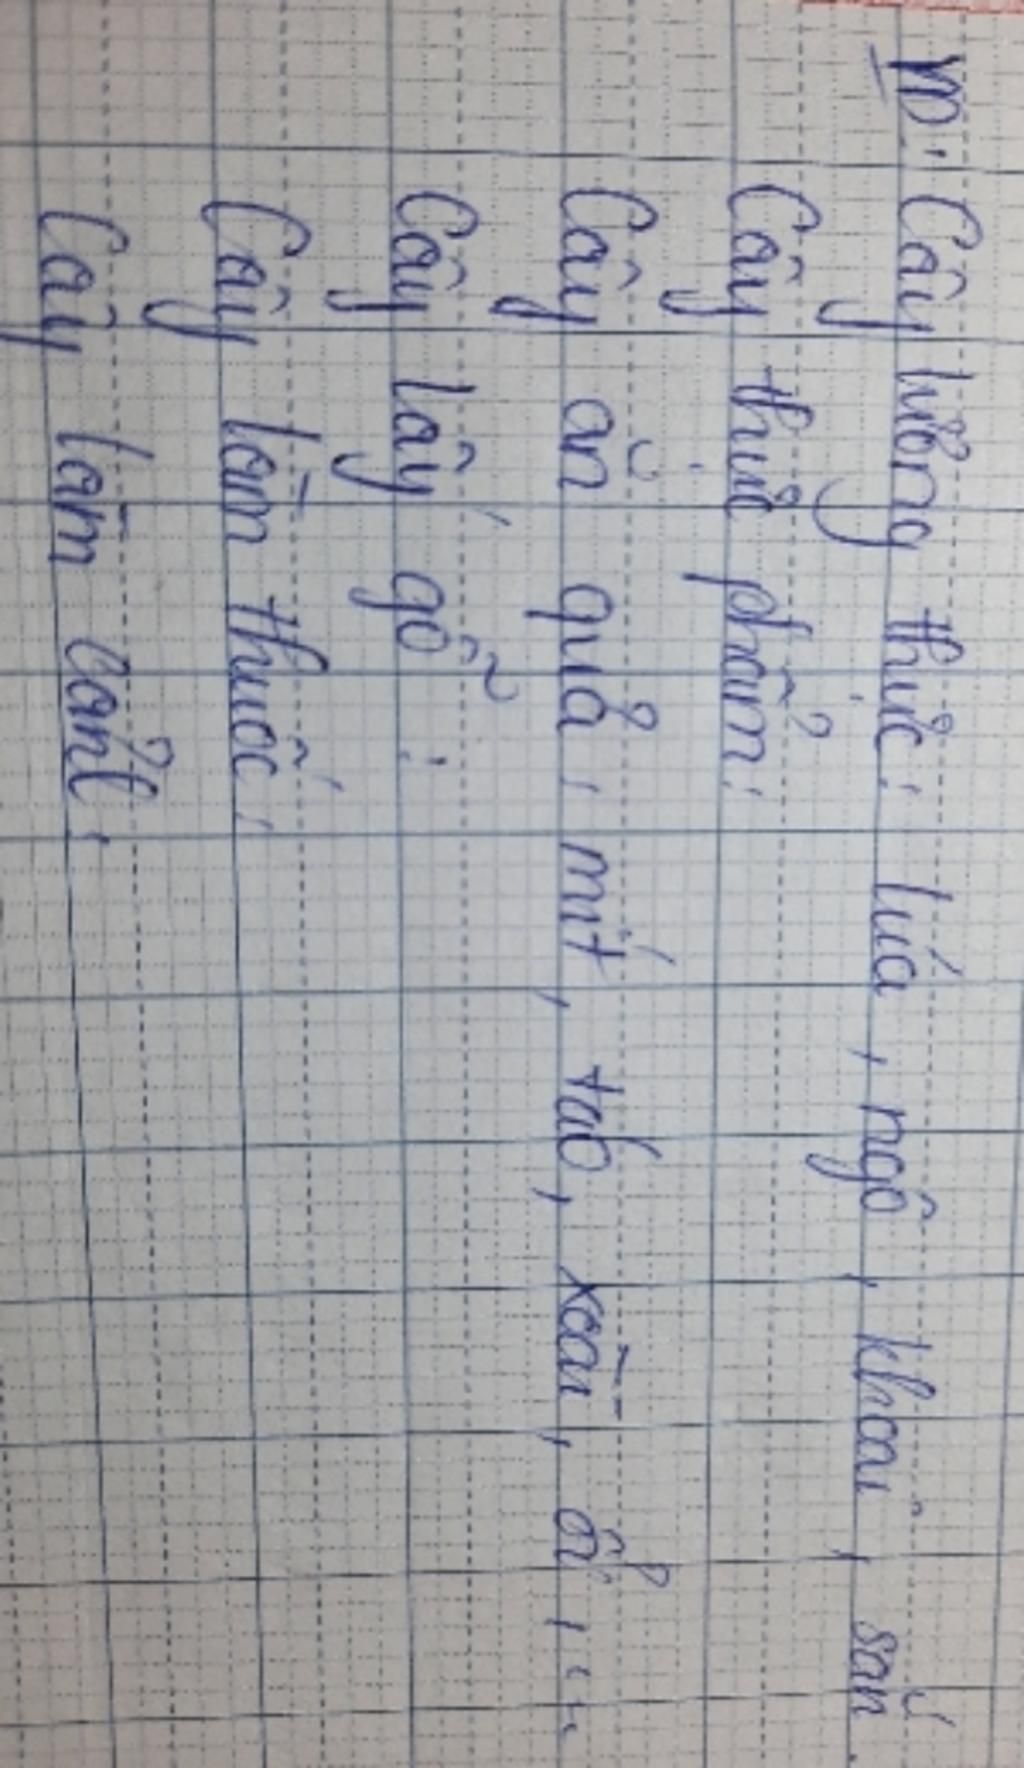 VD: Cây lương thực: lúa, ngô, khoai, sắn.
Cây thực phẩm:
Cây ăn quả: mít, táo, xoài, ổi, ...
Cây lấy gỗ:
Cây làm thuốc:
Cây làm cảnh: